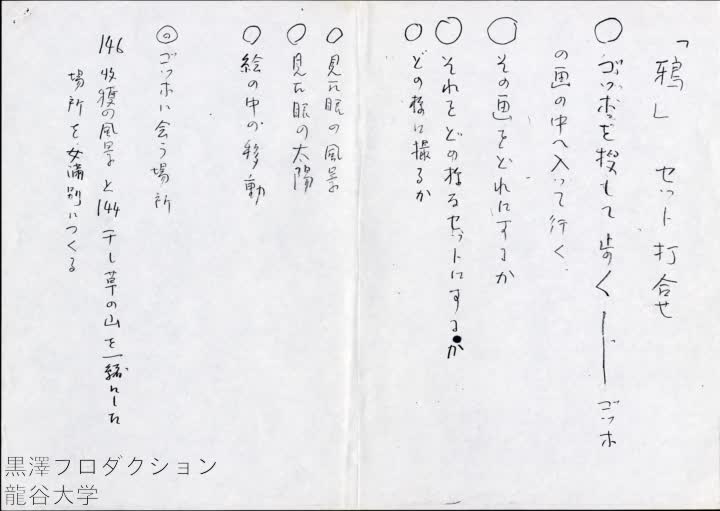 「鴉」 セット打合せ
○ ゴッホを探して歩く――ゴッホ
の画の中へ入って行く
○ その画をどれにするか
○ それをどの様なセットにするか
○ どの様に撮るか
○ 見た眼の風景
○ 見た眼の太陽
○ 絵の中の移動
◎ ゴッホに会う場所
146 収穫の風景と144干し草の山を一緒にした
場所を女満別につくる
黒澤プロダクション
龍谷大学